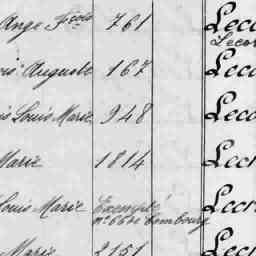 Ange Fçois 761 Leco
Lecor
ois Auguste 167 Leco
is Louis Marie 948 Leco
Marie 1814 Lecr
Louis Marie Exempté Lecr
nº 66 de Combourg
Marie 2151 Lecr